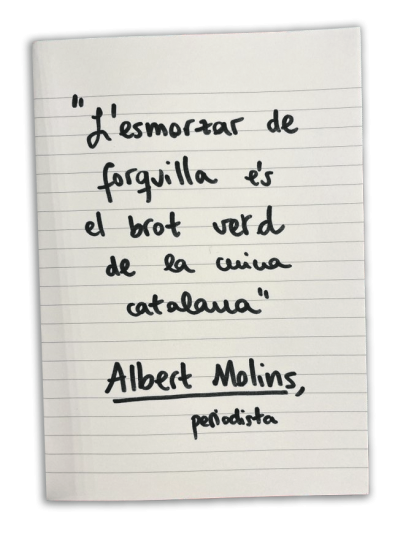 "L'esmorzar de
forquilla és
el brot verd
de la cuina
catalana"
Albert Molins,
periodista